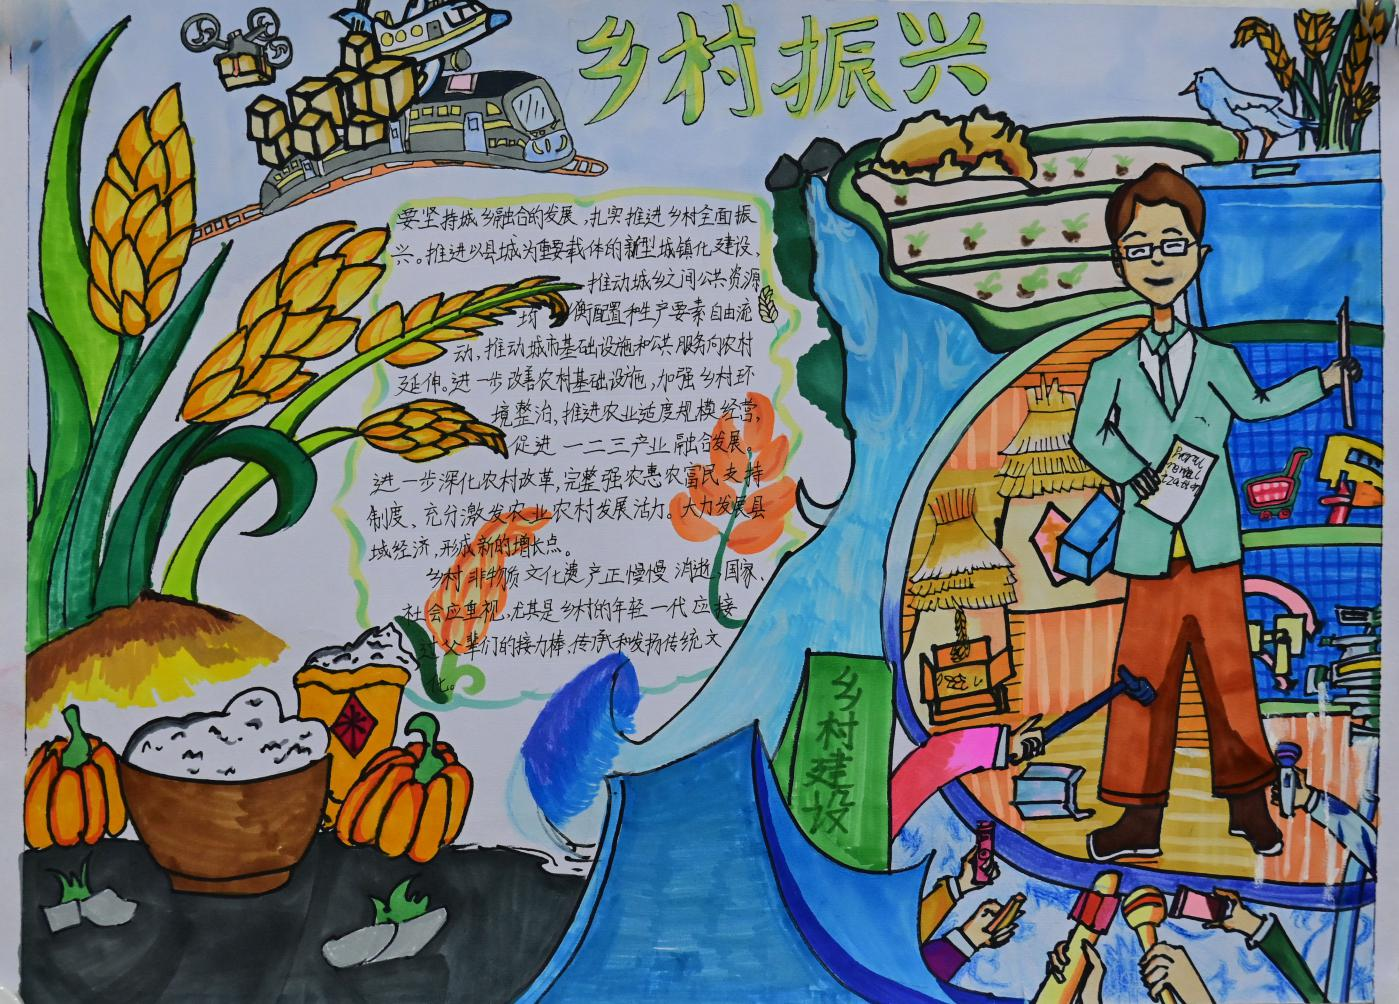 乡村振兴
要坚持城乡融合的发展,扎实推进乡村全面振
兴。推进以县城为重要载体的新型城镇化建设,
推动城乡之间公共资源
均衡配置和生产要素自由流
动,推动城市基础设施和公共服务向农村
延伸。进一步改善农村基础设施,加强乡村环
境整治,推进农业适度规模经营,
促进一二三产业融合发展。
进一步深化农村改革,完整强农惠农富民支持
制度、充分激发农业农村发展活力。大力发展县
域经济,形成新的增长点。
乡村非物质文化遗产正慢慢消逝,国家、
社会应重视,尤其是乡村的年轻一代应接
过父辈们的接力棒,传承和发扬传统文
化。
乡村建设